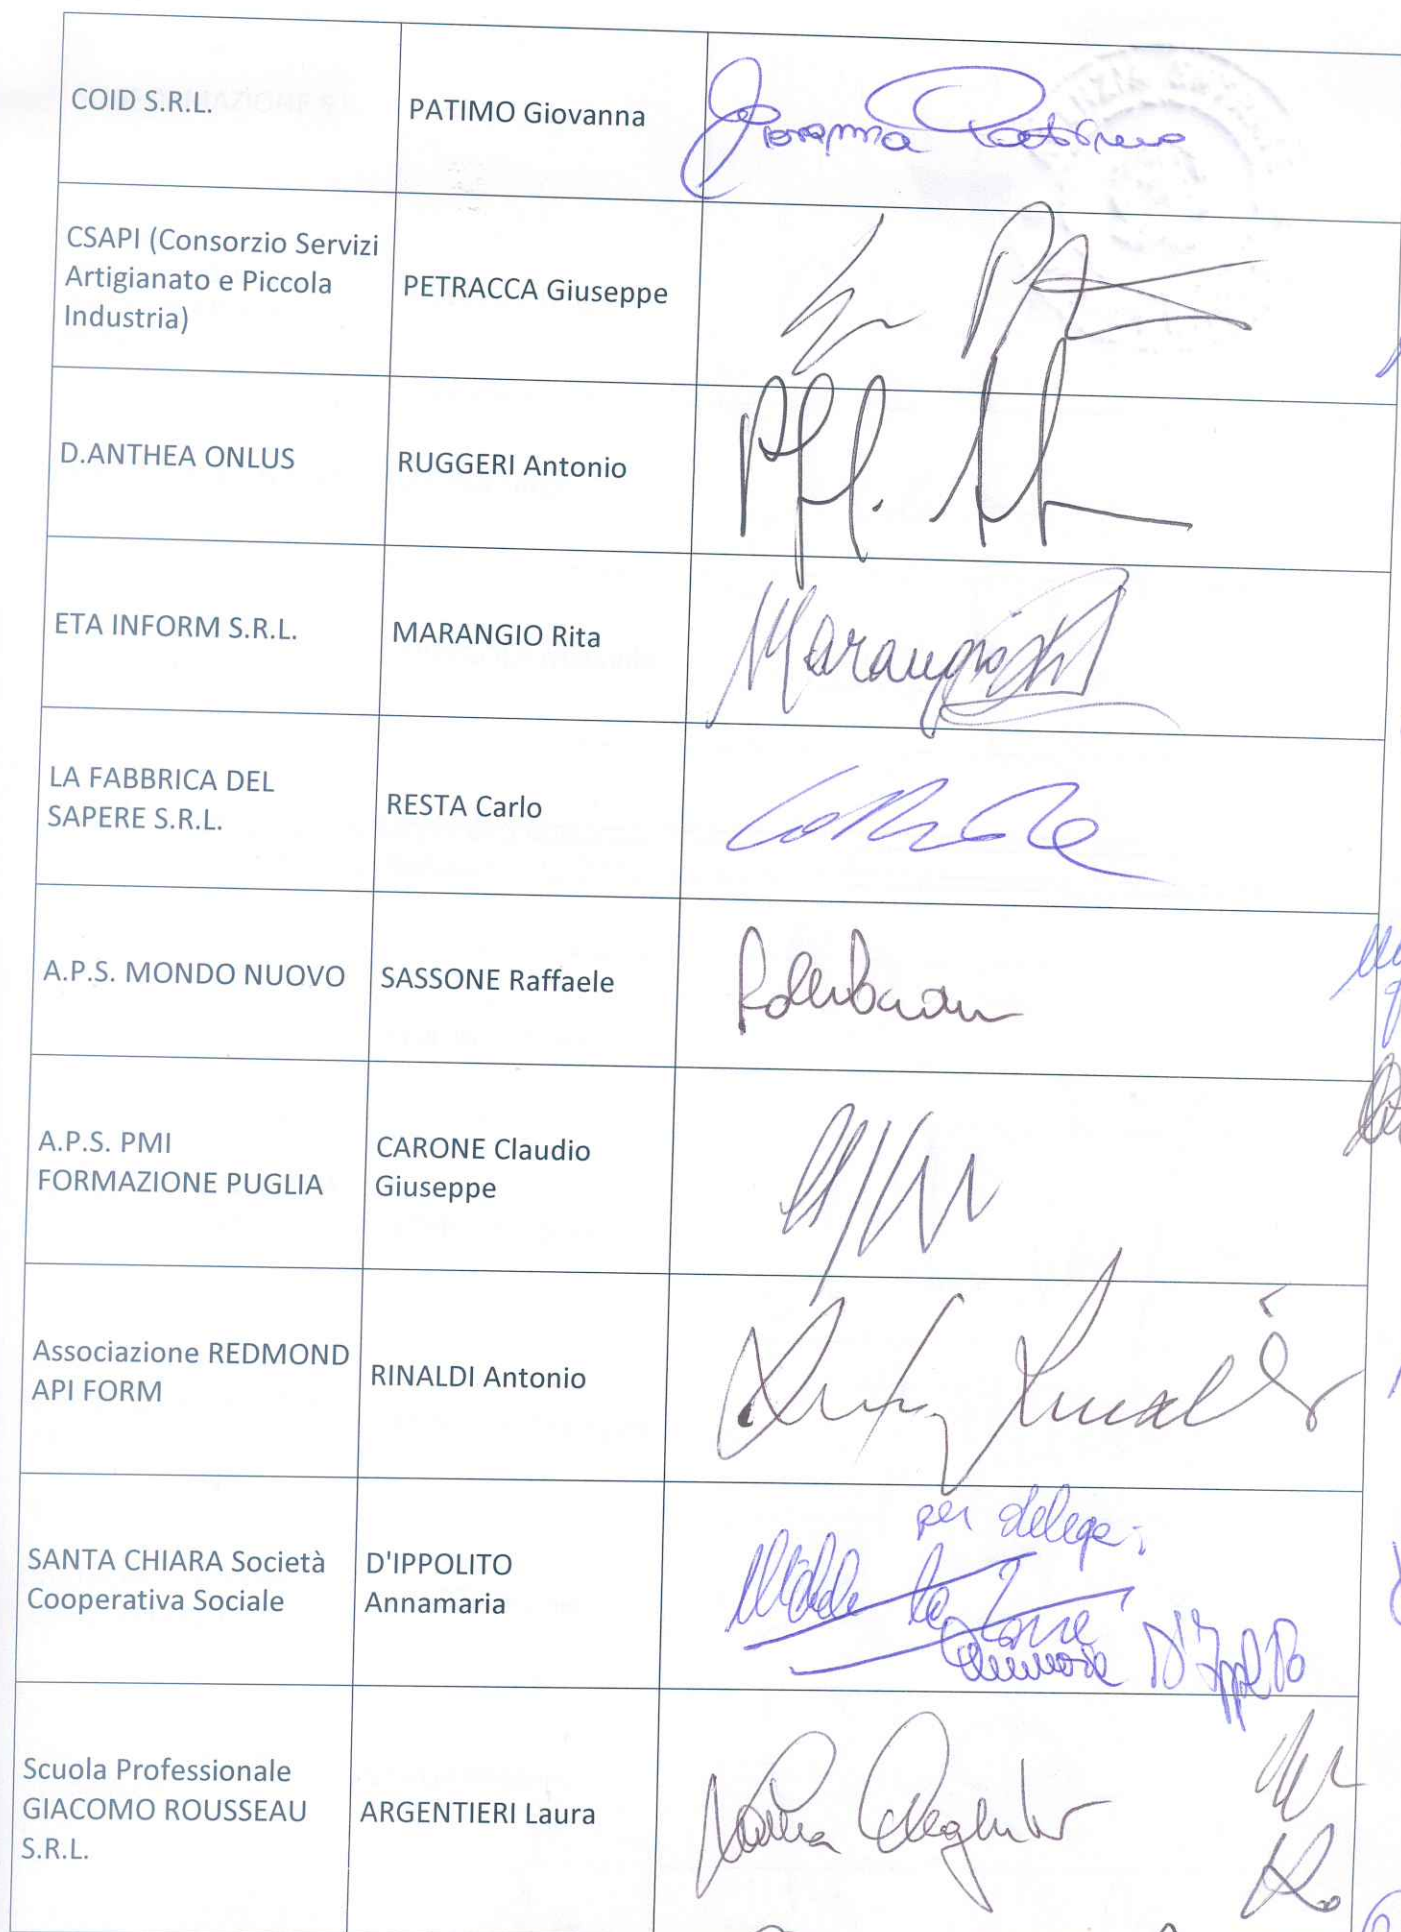 COID S.R.L.
PATIMO Giovanna
Giovanna Patimo
CSAPI (Consorzio Servizi
Artigianato e Piccola
Industria)
PETRACCA Giuseppe
D.ANTHEA ONLUS
RUGGERI Antonio
ETA INFORM S.R.L.
MARANGIO Rita
Marangio
LA FABBRICA DEL
SAPERE S.R.L.
RESTA Carlo
A.P.S. MONDO NUOVO
SASSONE Raffaele
A.P.S. PMI
FORMAZIONE PUGLIA
CARONE Claudio
Giuseppe
Associazione REDMOND
API FORM
RINALDI Antonio
SANTA CHIARA Società
Cooperativa Sociale
D'IPPOLITO
Annamaria
per delega:
D'Ippolito
Scuola Professionale
GIACOMO ROUSSEAU
S.R.L.
ARGENTIERI Laura